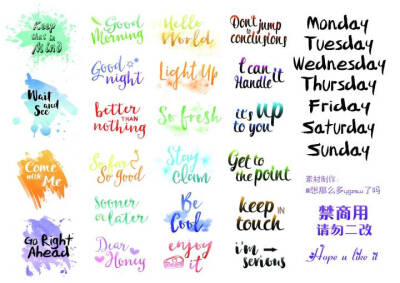 Keep
that in
Mind
Wait
and
See
Come
with
Me
Go Right
Ahead
Good
Morning
Good
night
better
THAN
nothing
So far
So good
Sooner
or later
Dear
Honey
Hello
World
Light Up
So fresh
Stay
Claam
Be
Cool.
enjoy
it
Don't jump
to
conclusions
I can
Handle it
it's up
to you
Get to
the point
keep
IN
touch
i'm
so
serious
Monday
Tuesday
Wednesday
Thursday
Friday
Saturday
Sunday
素材制作:
想那么多
了吗
禁商用
请勿二改
Hope u like it